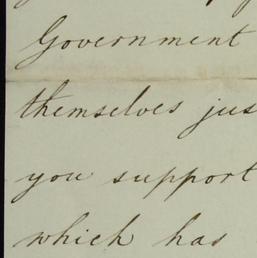 Government
themselves jus
you support
which has